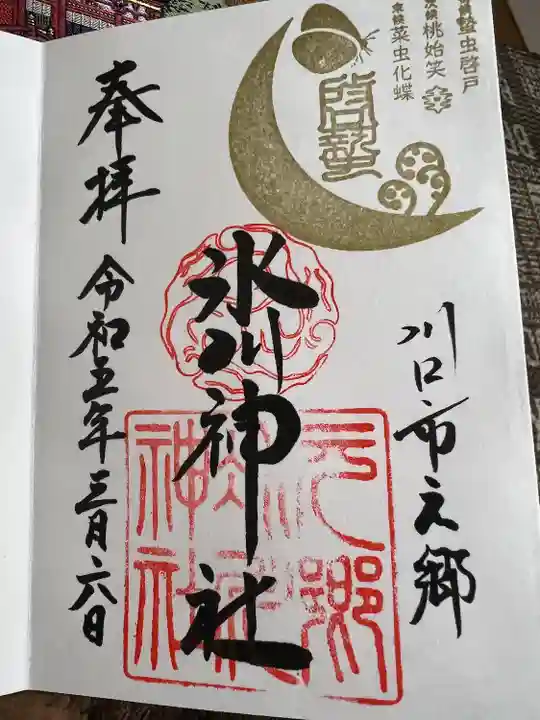 蟄虫啓戸
桃始笑
末候 菜虫化蝶
啓蟄
川口市元郷
氷川神社
奉拝
令和五年三月六日